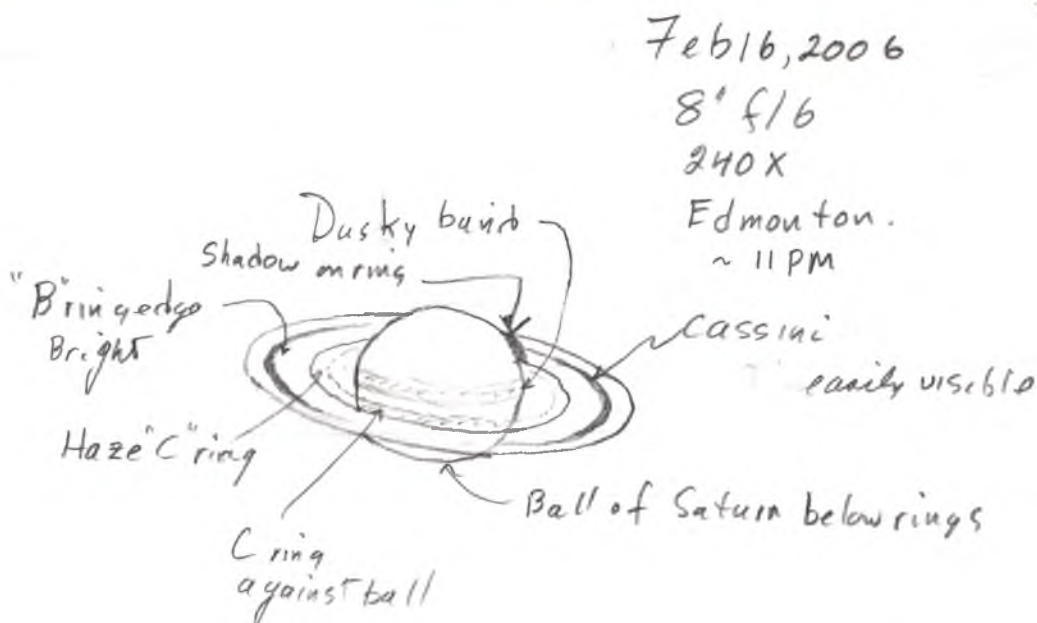 Feb 16, 2006
8" f/6
240X
Edmonton.
~ 11 PM
Dusky band
Shadow on ring
"B" ring edge
Bright
Cassini
easily visible
Haze "C" ring
Ball of Saturn below rings
C ring
against ball